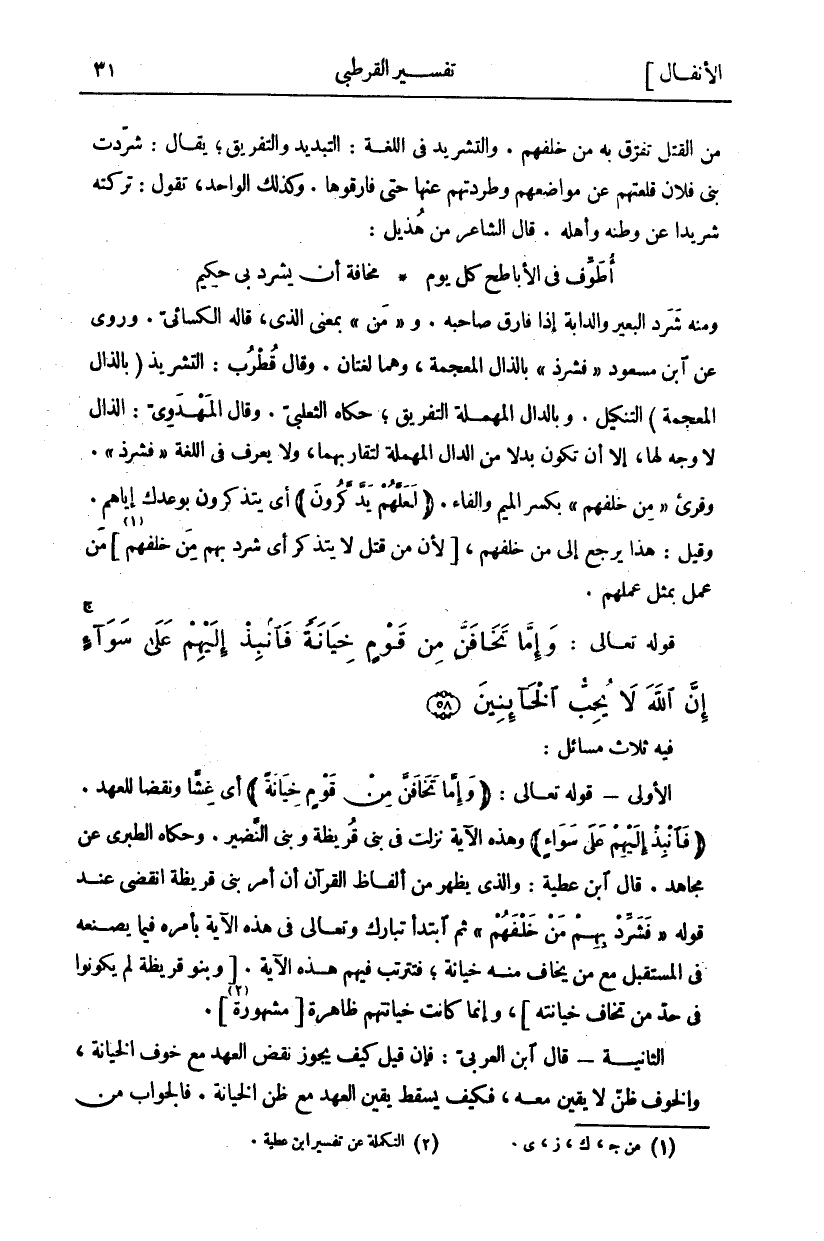 الأنفال ] تفسير القرطبي ٣١
من القتل تفرّق به من خلفهم . والتشريد فى اللغة : التبديد والتفريق ؛ يقال : شرّدت
بنى فلان قلعتهم عن مواضعهم وطردتهم عنها حتى فارقوها . وكذلك الواحد، تقول : تركته
شريدا عن وطنه وأهله . قال الشاعر من هُذيل :
أُطَوِّف فى الأباطح كل يوم * مخافة أن يشرد بى حكيم
ومنه شَرَد البعير والدابة إذا فارق صاحبه . و « مَن » بمعنى الذى، قاله الكسائىّ . وروى
عن ٱبن مسعود « فشرذ » بالذال المعجمة ، وهما لغتان . وقال قُطْرُب : التشريذ ( بالذال
المعجمة ) التنكيل . وبالدال المهملة التفريق ؛ حكاه الثعلبىّ . وقال المَهْدَوِىّ : الذال
لا وجه لها، إلا أن تكون بدلا من الدال المهملة لتقاربهما، ولا يعرف فى اللغة « فشرذ » .
وقرئ « مِن خلفهم » بكسر الميم والفاء . ﴿ لَعَلَّهُمْ يَذَّكَّرُونَ ﴾ أى يتذكرون بوعدك إياهم .
وقيل : هذا يرجع إلى من خلفهم ، [ لأن من قتل لا يتذكر أى شرد بهم مِن خلفهم ] (١) مَن
عمل بمثل عملهم .
قوله تعالى : وَإِمَّا تَخَافَنَّ مِن قَوْمٍ خِيَانَةً فَٱنۢبِذْ إِلَيْهِمْ عَلَىٰ سَوَآءٍ ۚ
إِنَّ ٱللَّهَ لَا يُحِبُّ ٱلْخَآئِنِينَ ٥٨
فيه ثلاث مسائل :
الأولى — قوله تعالى : ﴿ وَإِمَّا تَخَافَنَّ مِنْ قَوْمٍ خِيَانَةً ﴾ أى غِشًّا ونقضا للعهد .
﴿ فَٱنْبِذْ إِلَيْهِمْ عَلَى سَوَاءٍ ﴾ وهذه الآية نزلت فى بنى قُريظة وبنى النَّضير . وحكاه الطبرى عن
مجاهد . قال ٱبن عطية : والذى يظهر من ألفاظ القرآن أن أمر بنى قريظة انقضى عند
قوله « فَشَرِّدْ بِهِمْ مَنْ خَلْفَهُمْ » ثم ٱبتدأ تبارك وتعالى فى هذه الآية بأمره فيما يصنعه
فى المستقبل مع من يخاف منه خيانة ؛ فترتب فيهم هذه الآية . [ وبنو قريظة لم يكونوا
فى حدّ من تخاف خيانته ] ، وإنما كانت خيانتهم ظاهرة [ مشهورة ] (٢) .
الثانية — قال ٱبن العربىّ : فإن قيل كيف يجوز نقض العهد مع خوف الخيانة ،
والخوف ظنّ لا يقين معه ، فكيف يسقط يقين العهد مع ظن الخيانة . فالجواب من
(١) من جـ ، ك ، ز ، ى . (٢) التكملة عن تفسير ابن عطية .